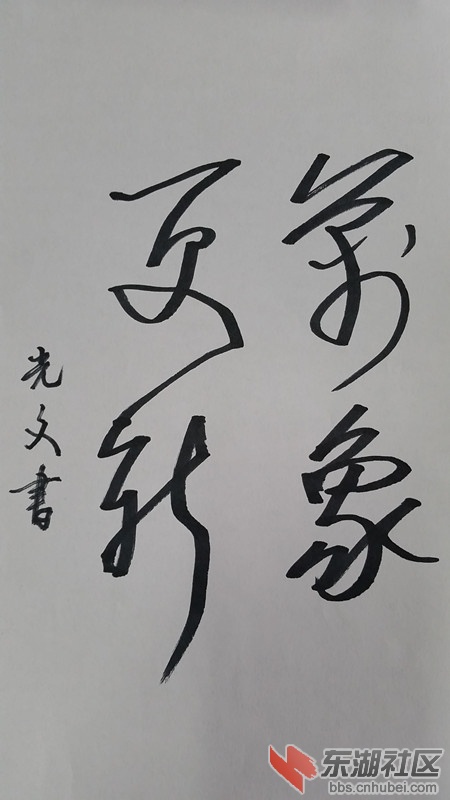 萬象
更新
先文書
东湖社区
bbs.cnhubei.com